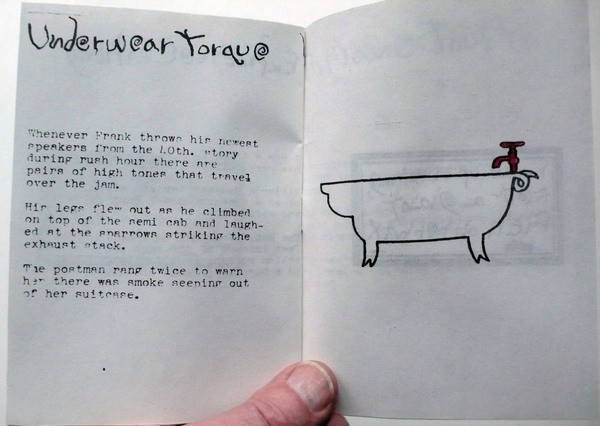 Underwear Torque
Whenever Frank throws his newest
speakers from the 40th. story
during rush hour there are
pairs of high tones that travel
over the jam.
His legs flew out as he climbed
on top of the semi cab and laugh-
ed at the sparrows striking the
exhaust stack.
The postman rang twice to warn
her there was smoke seeping out
of her suitcase.